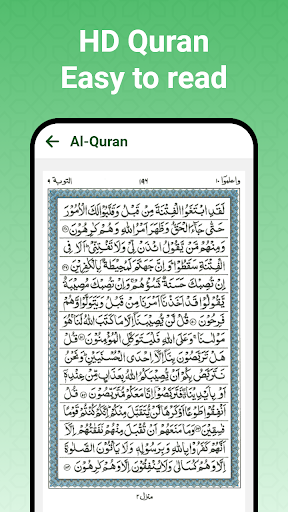 HD Quran
Easy to read
Al-Quran
واعلموا ١٠ ١٩٦ التوبة ٩
لَقَدِ ابْتَغَوُا الْفِتْنَةَ مِنْ قَبْلُ وَقَلَّبُوْا لَكَ الْاُمُوْرَ
حَتّٰى جَآءَ الْحَقُّ وَظَهَرَ اَمْرُ اللّٰهِ وَهُمْ كٰرِهُوْنَ ﴿٤٨﴾
وَمِنْهُمْ مَّنْ يَّقُوْلُ ائْذَنْ لِّيْ وَلَا تَفْتِنِّيْ ؕ اَلَا فِي
الْفِتْنَةِ سَقَطُوْا ؕ وَاِنَّ جَهَنَّمَ لَمُحِيْطَةٌۢ بِالْكٰفِرِيْنَ ﴿٤٩﴾
اِنْ تُصِبْكَ حَسَنَةٌ تَسُؤْهُمْ ۚ وَاِنْ تُصِبْكَ مُصِيْبَةٌ
يَّقُوْلُوْا قَدْ اَخَذْنَاۤ اَمْرَنَا مِنْ قَبْلُ وَيَتَوَلَّوْا وَّهُمْ
فَرِحُوْنَ ﴿٥٠﴾ قُلْ لَّنْ يُّصِيْبَنَاۤ اِلَّا مَا كَتَبَ اللّٰهُ لَنَا ۚ هُوَ
مَوْلٰىنَا ۚ وَعَلَى اللّٰهِ فَلْيَتَوَكَّلِ الْمُؤْمِنُوْنَ ﴿٥١﴾ قُلْ
هَلْ تَرَبَّصُوْنَ بِنَاۤ اِلَّاۤ اِحْدَى الْحُسْنَيَيْنِ ؕ وَنَحْنُ
نَتَرَبَّصُ بِكُمْ اَنْ يُّصِيْبَكُمُ اللّٰهُ بِعَذَابٍ مِّنْ عِنْدِهٖۤ
اَوْ بِاَيْدِيْنَا ۖ فَتَرَبَّصُوْۤا اِنَّا مَعَكُمْ مُّتَرَبِّصُوْنَ ﴿٥٢﴾ قُلْ
اَنْفِقُوْا طَوْعًا اَوْ كَرْهًا لَّنْ يُّتَقَبَّلَ مِنْكُمْ ؕ اِنَّكُمْ كُنْتُمْ قَوْمًا
فٰسِقِيْنَ ﴿٥٣﴾ وَمَا مَنَعَهُمْ اَنْ تُقْبَلَ مِنْهُمْ نَفَقٰتُهُمْ اِلَّاۤ
اَنَّهُمْ كَفَرُوْا بِاللّٰهِ وَبِرَسُوْلِهٖ وَلَا يَاْتُوْنَ الصَّلٰوةَ
اِلَّا وَهُمْ كُسَالٰى وَلَا يُنْفِقُوْنَ اِلَّا وَهُمْ كٰرِهُوْنَ ﴿٥٤﴾
منزل ٢